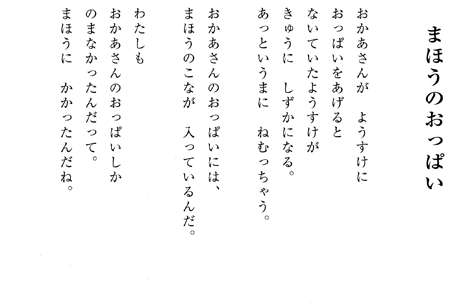 まほうのおっぱい
おかあさんが　ようすけに
おっぱいをあげると
ないていたようすけが
きゅうに　しずかになる。
あっというまに　ねむっちゃう。
おかあさんのおっぱいには、
まほうのこなが　入っているんだ。
わたしも
おかあさんのおっぱいしか
のまなかったんだって。
まほうに　かかったんだね。